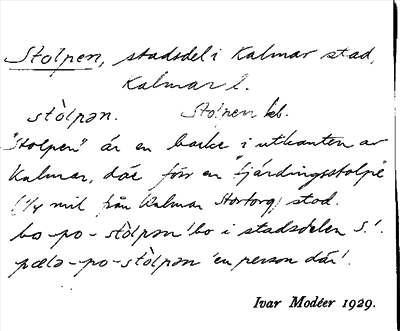 Stolpen, stadsdel i Kalmar stad,
Kalmar l.
stòlpən. Stolpen kb.
"Stolpen" är en backe i utkanten av
Kalmar, där förr en "fjärdingsstolpe"
(1/4 mil från Kalmar Stortorg) stod.
bo-po-stòlpən 'bo i stadsdelen S.'.
pælə-po-stòlpən 'en person där'.
Ivar Modéer 1929.